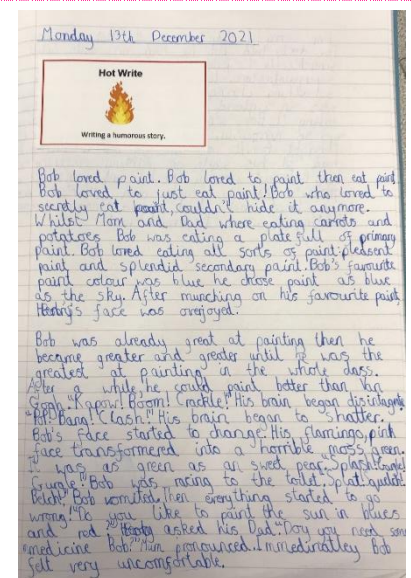 Monday 13th December 2021
Hot Write
Writing a humorous story.
Bob loved paint. Bob loved to paint then eat paint.
Bob loved to just eat paint! Bob who loved to
secretly eat paint, couldn't hide it anymore.
Whilst Mom and Dad where eating carrots and
potatoes Bob was eating a plate full of primary
paint. Bob loved eating all sorts of paint: pleasent
paint and splendid secondary paint. Bob's favourite
paint colour was blue he chose paint as blue
as the sky. After munching on his favourite paint,
face was overjoyed.
Bob was already great at painting then he
became greater and greater until he was the
greatest at painting in the whole class.
After a while, he could paint better than Van
Gogh. "Kapow! Boom! Crackle!" His brain began
"Pop! Bang! Clash!" His brain began to shatter.
Bob's face started to change. His flamingo, pink
face transformered into a horrible moss green.
It was as green as an sweet pear. Splash!
Gurgle! Bob was racing to the toilet. Splat!
Belch!" Bob vomited. Then everything started to go
wrong! "Do you like to paint the sun in blues
and red" asked his Dad. you need some
medicine Bob?" Mum pronounced. Immediatley Bob
felt very uncomfortable.